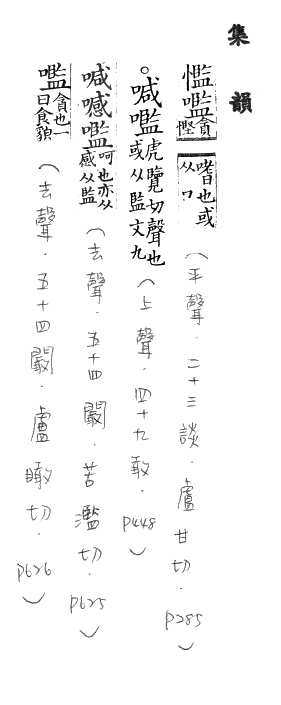 集韻
懢嚂貪慳嗜也或从口(平聲.二十三談.盧甘切.p285)
。喊嚂虎覽切聲也或从監文九(上聲.四十九敢.p448)
喊㘕嚂呵也亦从感从監(去聲.五十四闞.苦濫切.p625)
嚂貪也一曰食貌(去聲.五十四闞.盧瞰切.p626)